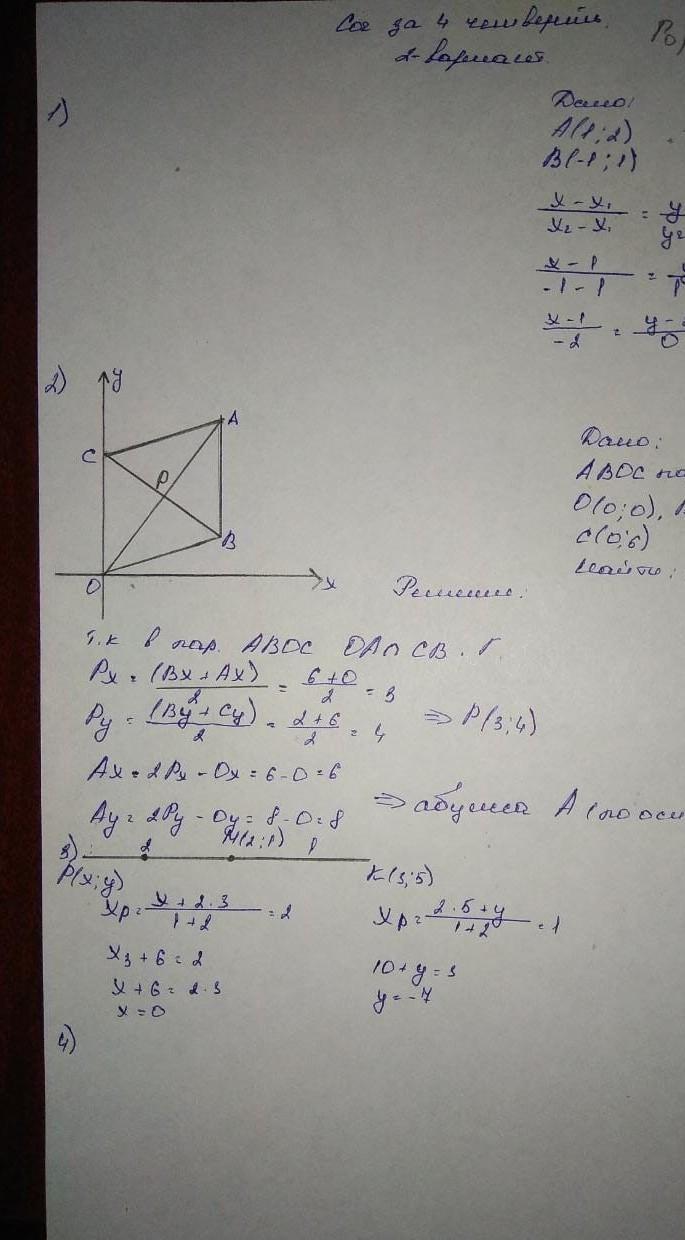 Соч за 4 четверть.
2-вариант.
1)
Дано:
A(1;2)
B(-1;1)
(x - x₁)/(x₂ - x₁) = y
(x - 1)/(-1 - 1) =
(x-1)/(-2) = (y -)/0
2)
y
A
C
P
B
O
x
Дано:
ABOC па
O(0;0),
C(0;6)
Найти:
Решение:
т.к в пар. ABOC OA∩CB
Px = (Bx + Ax)/2 = (6+0)/2 = 3
Py = (By + Cy)/2 = (2+6)/2 = 4 ⇒ P(3;4)
Ax = 2Px - Ox = 6-0 = 6
Ay = 2Py - Oy = 8-0 = 8 ⇒ абцисса A (по оси
3) 2 M(2;1) 1
P(x;y) K(3;5)
Xp = (x + 2·3)/(1+2) = 2
Xp = (2·5+y)/(1+2) = 1
x₃ + 6 = 2
x + 6 = 2·3
x = 0
10 + y = 3
y = -7
4)